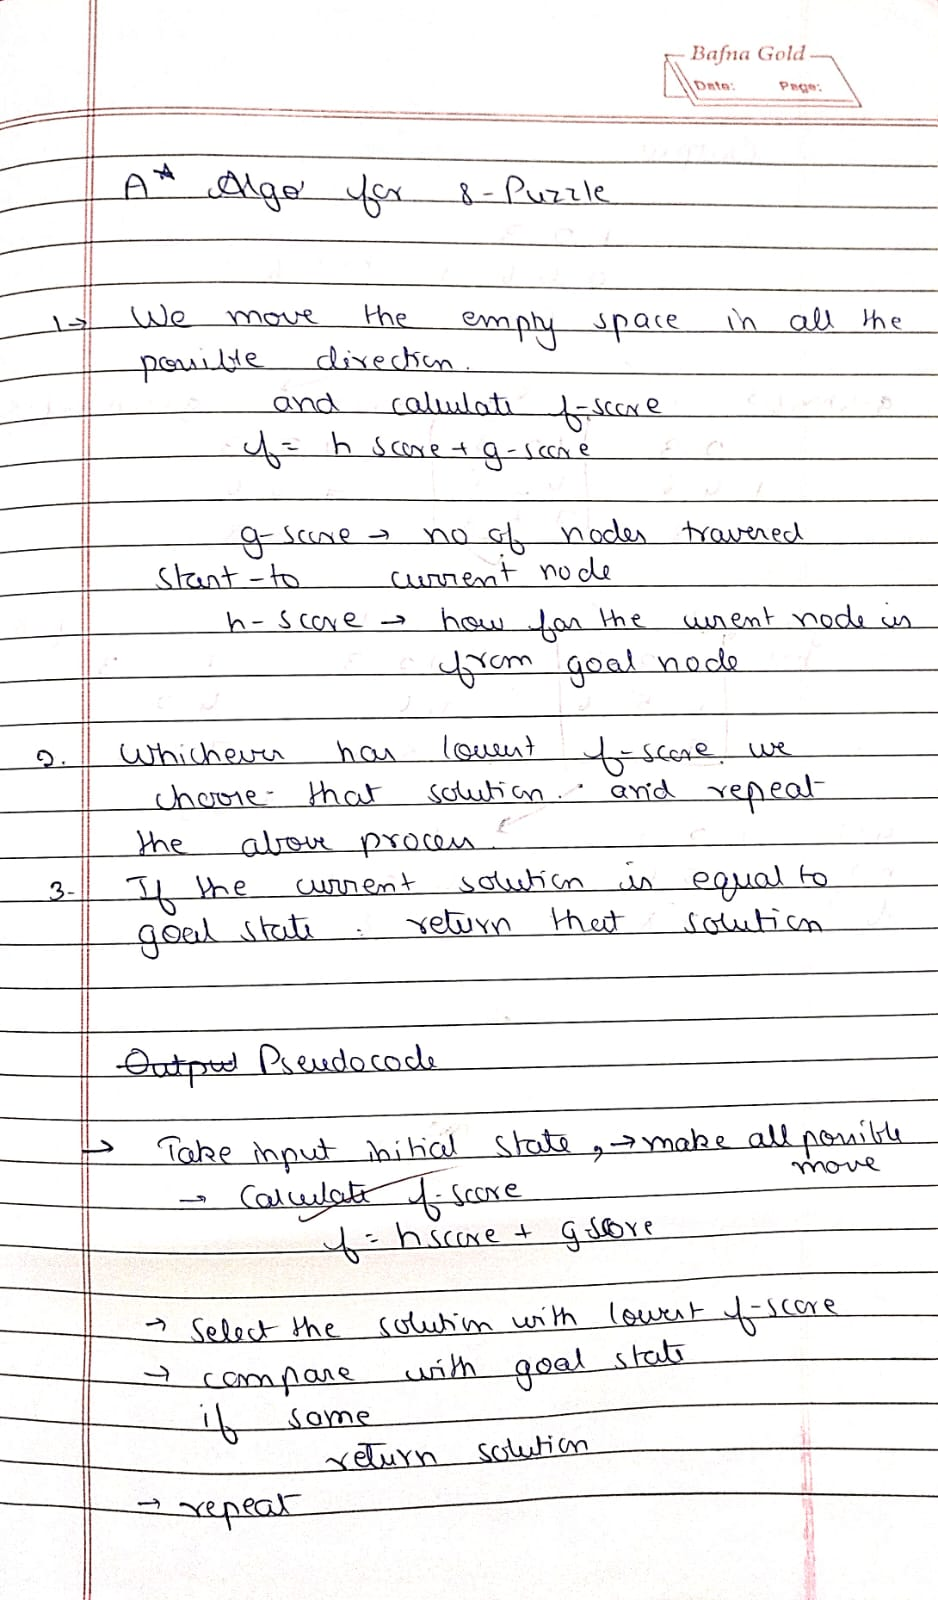 Bafna Gold
Date: Page:
A* Algo for 8-Puzzle
1→ We move the empty space in all the
possible direction.
and calculate f-score
f = h score + g-score
g-score → no of nodes traversed
start-to current node
h-score → how far the current node is
from goal node
2. Whichever has lowest f-score we
choose that solution. and repeat
the above process.
3- If the current solution is equal to
goal state. return that solution
Output Pseudocode
→ Take input initial state, → make all possible
move
→ Calculate f-score
f = h score + g score
→ Select the solution with lowest f-score
→ compare with goal state
if same
return solution
→ repeat